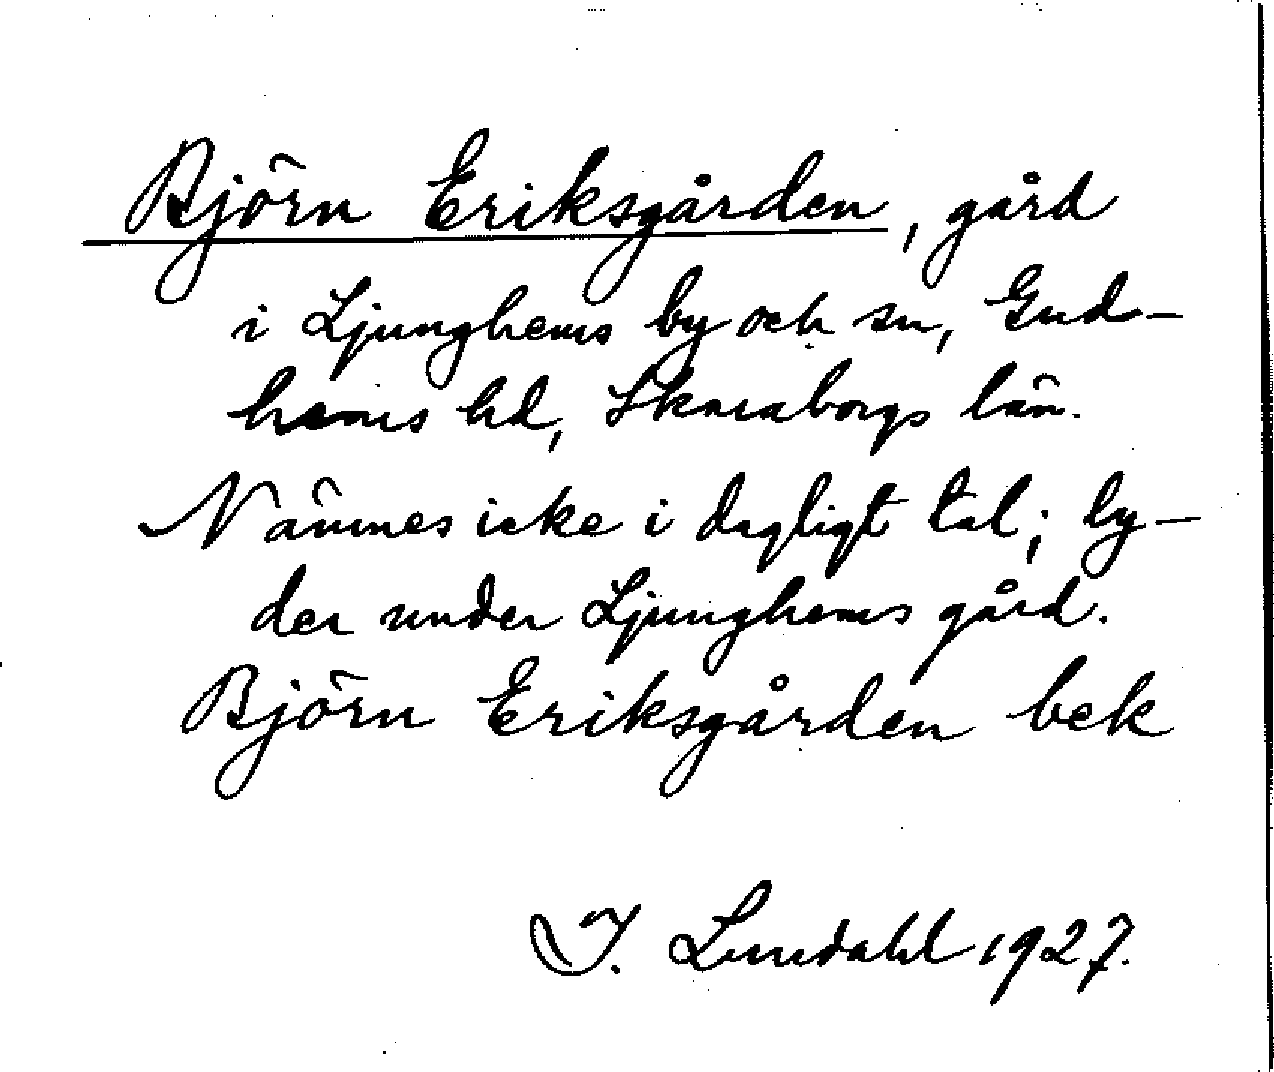 Björn Eriksgården, gård
i Ljunghems by och sn, Gud-
hems hd, Skaraborgs län.
Nämnes icke i dagligt tal; ly-
der under Ljunghems gård.
Björn Eriksgården bek
I. Lundahl 1927.